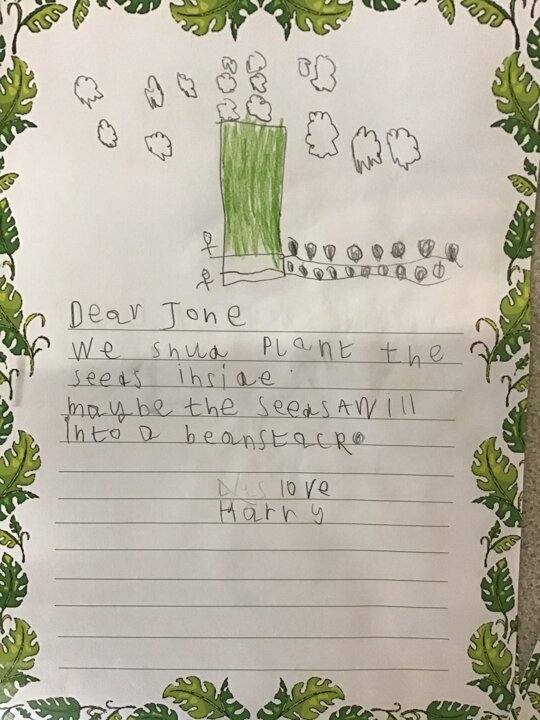 Dear Jone
We shud Plant the
seeds inside.
maybe the seeds will
into a beanstack
love
Harry